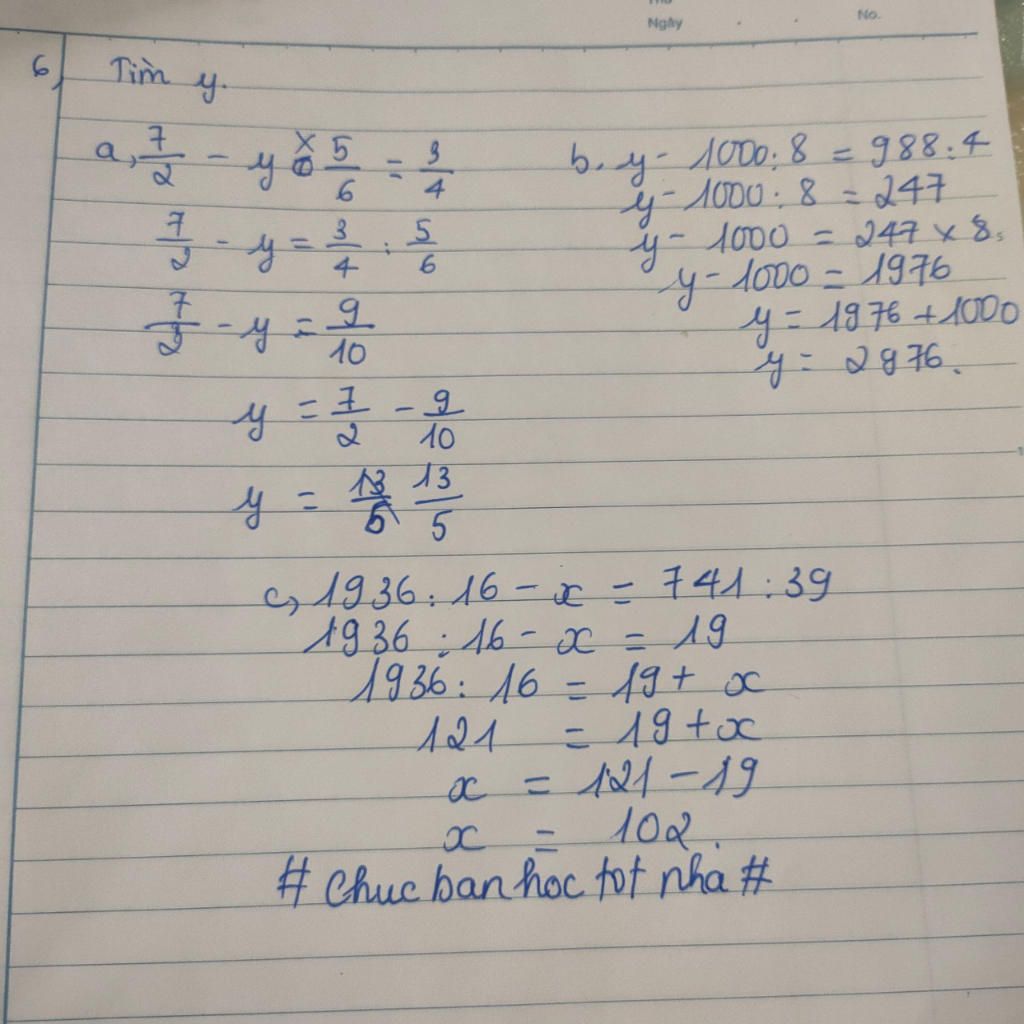 Thứ
Ngày . . No.
6, Tìm y.
a, 7/2 - y × 5/6 = 3/4
7/2 - y = 3/4 : 5/6
7/2 - y = 9/10
y = 7/2 - 9/10
y = 13/5 13/5
b. y - 1000 : 8 = 988 : 4
y - 1000 : 8 = 247
y - 1000 = 247 × 8
y - 1000 = 1976
y = 1976 + 1000
y = 2976.
c, 1936 : 16 - x = 741 : 39
1936 : 16 - x = 19
1936 : 16 = 19 + x
121 = 19 + x
x = 121 - 19
x = 102.
# chuc ban hoc tot nha #